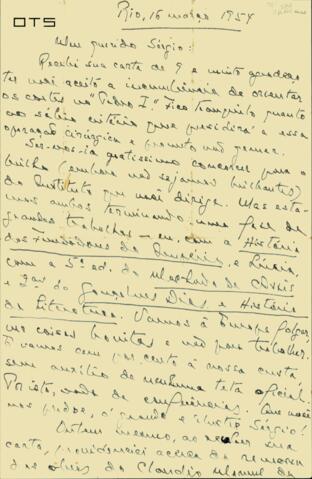 OTS
Rio, 16 março 1954
Meu querido Sérgio:
Recebi sua carta de 9 e muito agradeço
ter você aceito a incumbência de orientar
os cortes no "Pedro I." Fico tranquilo quanto
ao sábio critério que presidirá a essa
operação cirúrgica e prometo não gemer.
Ser-nos-ia gratíssimo concorrer para o
brilho (embora não sejamos brilhantes)
do Instituto que você dirige. Mas esta-
mos ambos terminando uma fase de
grandes trabalhos — eu, com a História
dos Fundadores do Império, e Lúcia,
com a 5ª ed. do Machado de Assis
e 2ª do Gonçalves Dias e História
da Literatura. Vamos à Europa folgar,
ver coisas bonitas e não para trabalhar.
E vamos cem por cento à nossa custa,
sem auxílio de nenhuma teta oficial.
Por isto, nada de conferências.
nos perdoe, ó grande e ilustre Sérgio!
Ontem mesmo, ao receber sua
carta, providenciei acerca da remessa
das obras do Claudio Manuel da